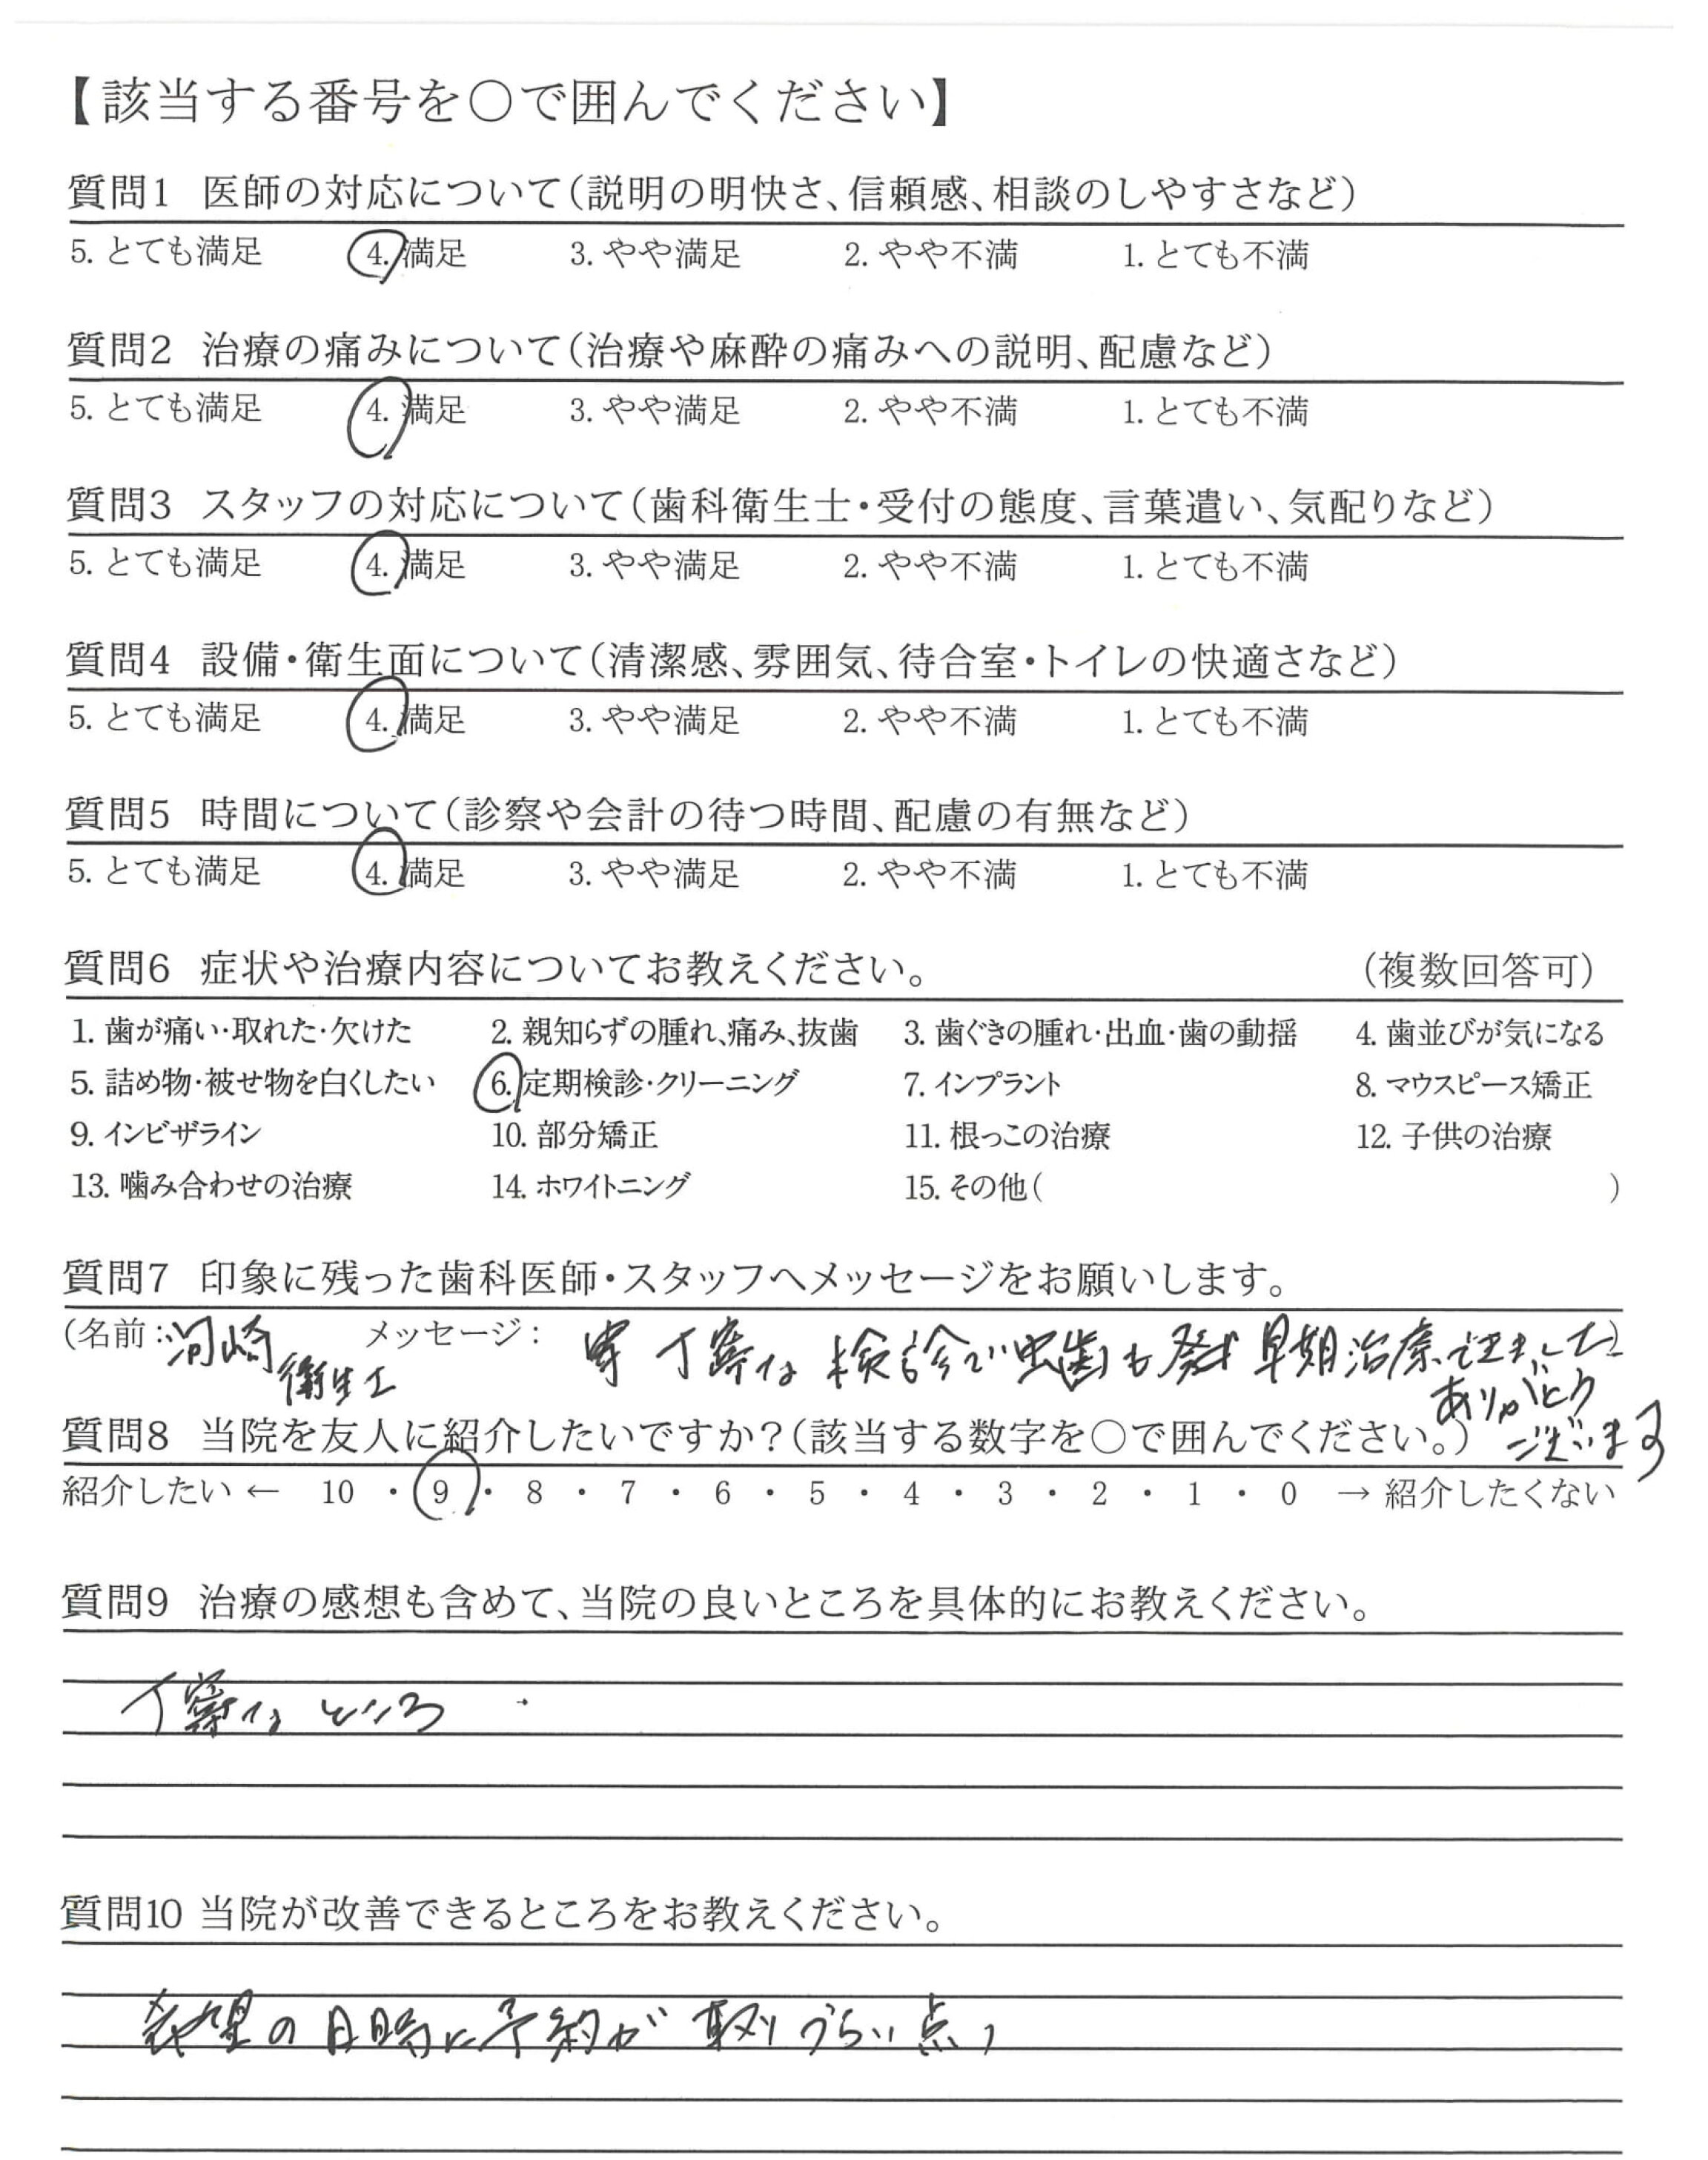 【該当する番号を〇で囲んでください】
質問1 医師の対応について(説明の明快さ、信頼感、相談のしやすさなど)
5. とても満足 4. 満足 3. やや満足 2. やや不満 1. とても不満
質問2 治療の痛みについて(治療や麻酔の痛みへの説明、配慮など)
5. とても満足 4. 満足 3. やや満足 2. やや不満 1. とても不満
質問3 スタッフの対応について(歯科衛生士・受付の態度、言葉遣い、気配りなど)
5. とても満足 4. 満足 3. やや満足 2. やや不満 1. とても不満
質問4 設備・衛生面について(清潔感、雰囲気、待合室・トイレの快適さなど)
5. とても満足 4. 満足 3. やや満足 2. やや不満 1. とても不満
質問5 時間について(診察や会計の待つ時間、配慮の有無など)
5. とても満足 4. 満足 3. やや満足 2. やや不満 1. とても不満
質問6 症状や治療内容についてお教えください。 (複数回答可)
1. 歯が痛い・取れた・欠けた 2. 親知らずの腫れ、痛み、抜歯 3. 歯ぐきの腫れ・出血・歯の動揺 4. 歯並びが気になる
5. 詰め物・被せ物を白くしたい 6. 定期検診・クリーニング 7. インプラント 8. マウスピース矯正
9. インビザライン 10. 部分矯正 11. 根っこの治療 12. 子供の治療
13. 噛み合わせの治療 14. ホワイトニング 15. その他( )
質問7 印象に残った歯科医師・スタッフへメッセージをお願いします。
(名前: 河崎 衛生士 メッセージ: 丁寧な検診で虫歯も 早期治療できました)
ありがとう
ございます
質問8 当院を友人に紹介したいですか?(該当する数字を〇で囲んでください。)
紹介したい ← 10 ・ 9 ・ 8 ・ 7 ・ 6 ・ 5 ・ 4 ・ 3 ・ 2 ・ 1 ・ 0 → 紹介したくない
質問9 治療の感想も含めて、当院の良いところを具体的にお教えください。
丁寧なところ
質問10 当院が改善できるところをお教えください。
希望の日時に予約が取りづらい点